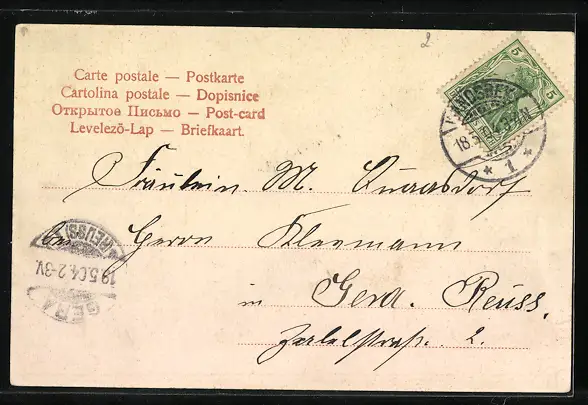 2
Carte postale — Postkarte
Cartolina postale — Dopisnice
Открытое Письмо — Post-card
Levelező-Lap — Briefkaart.
5 5
WANDSBEK
18.5.
* 1 *
Fräulein M. Quaasdorf
bei Herrn Kleemann
in Gera. Reuss.
Zabelstraße. 2.
GERA
19.5.04. 2-3V.
(REUSS)